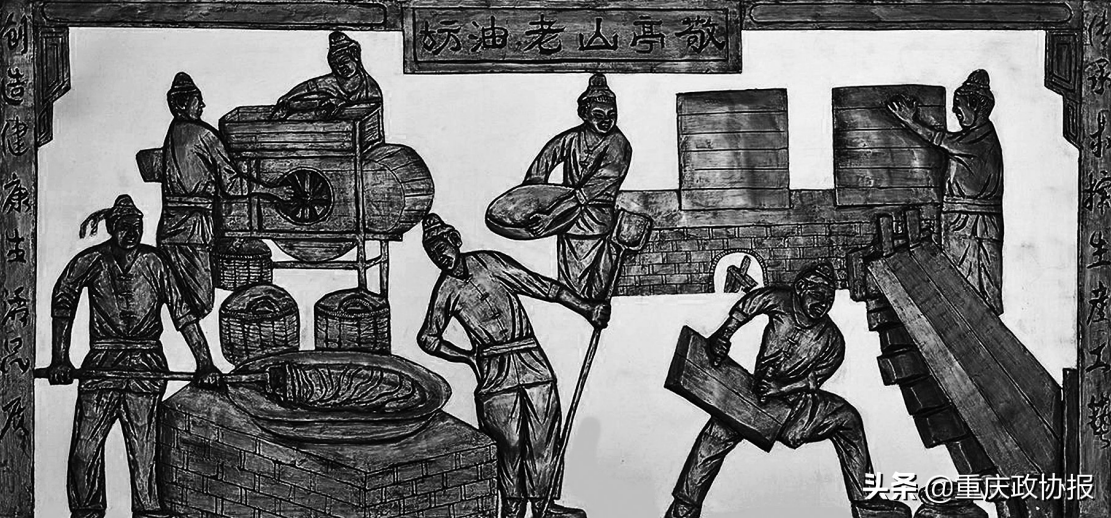 敬亭山老油坊
传承木榨生產工藝
创造健康生活品质
头条 @重庆政协报